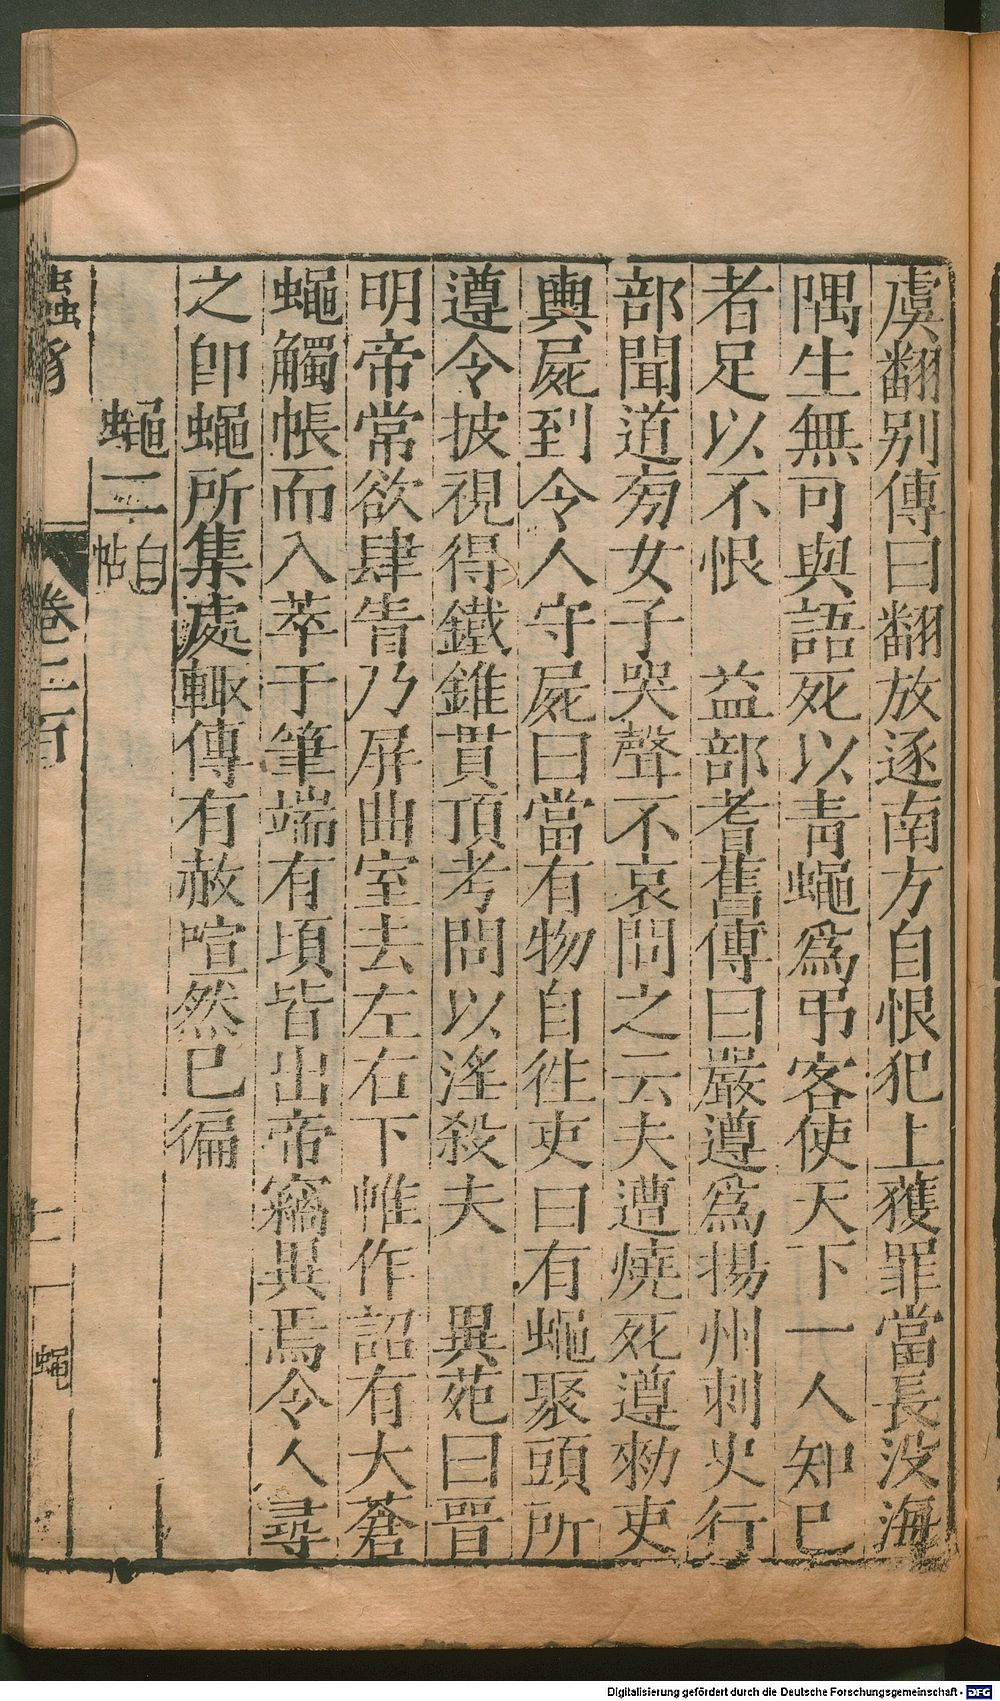 虞翻别傳曰翻放逐南方自恨犯上獲罪當長没海
隅生無可與語死以青蠅爲弔客使天下一人知已
者足以不恨　益部耆舊傳曰嚴遵爲揚州刺史行
部聞道旁女子哭聲不哀問之云夫遭燒死遵勑吏
輿屍到令人守屍曰當有物自徃吏曰有蠅聚頭所
遵令披視得鐵錐貫頂考問以淫殺夫　異苑曰晉
明帝常欲肆眚乃屏曲室去左右下帷作詔有大蒼
蠅觸帳而入萃于筆端有頃皆出帝竊異焉令人尋
之卽蠅所集處輙傳有赦喧然已徧
蠅二自帖
蟲豸　卷三百　十一　蠅
Digitalisierung gefördert durch die Deutsche Forschungsgemeinschaft - DFG